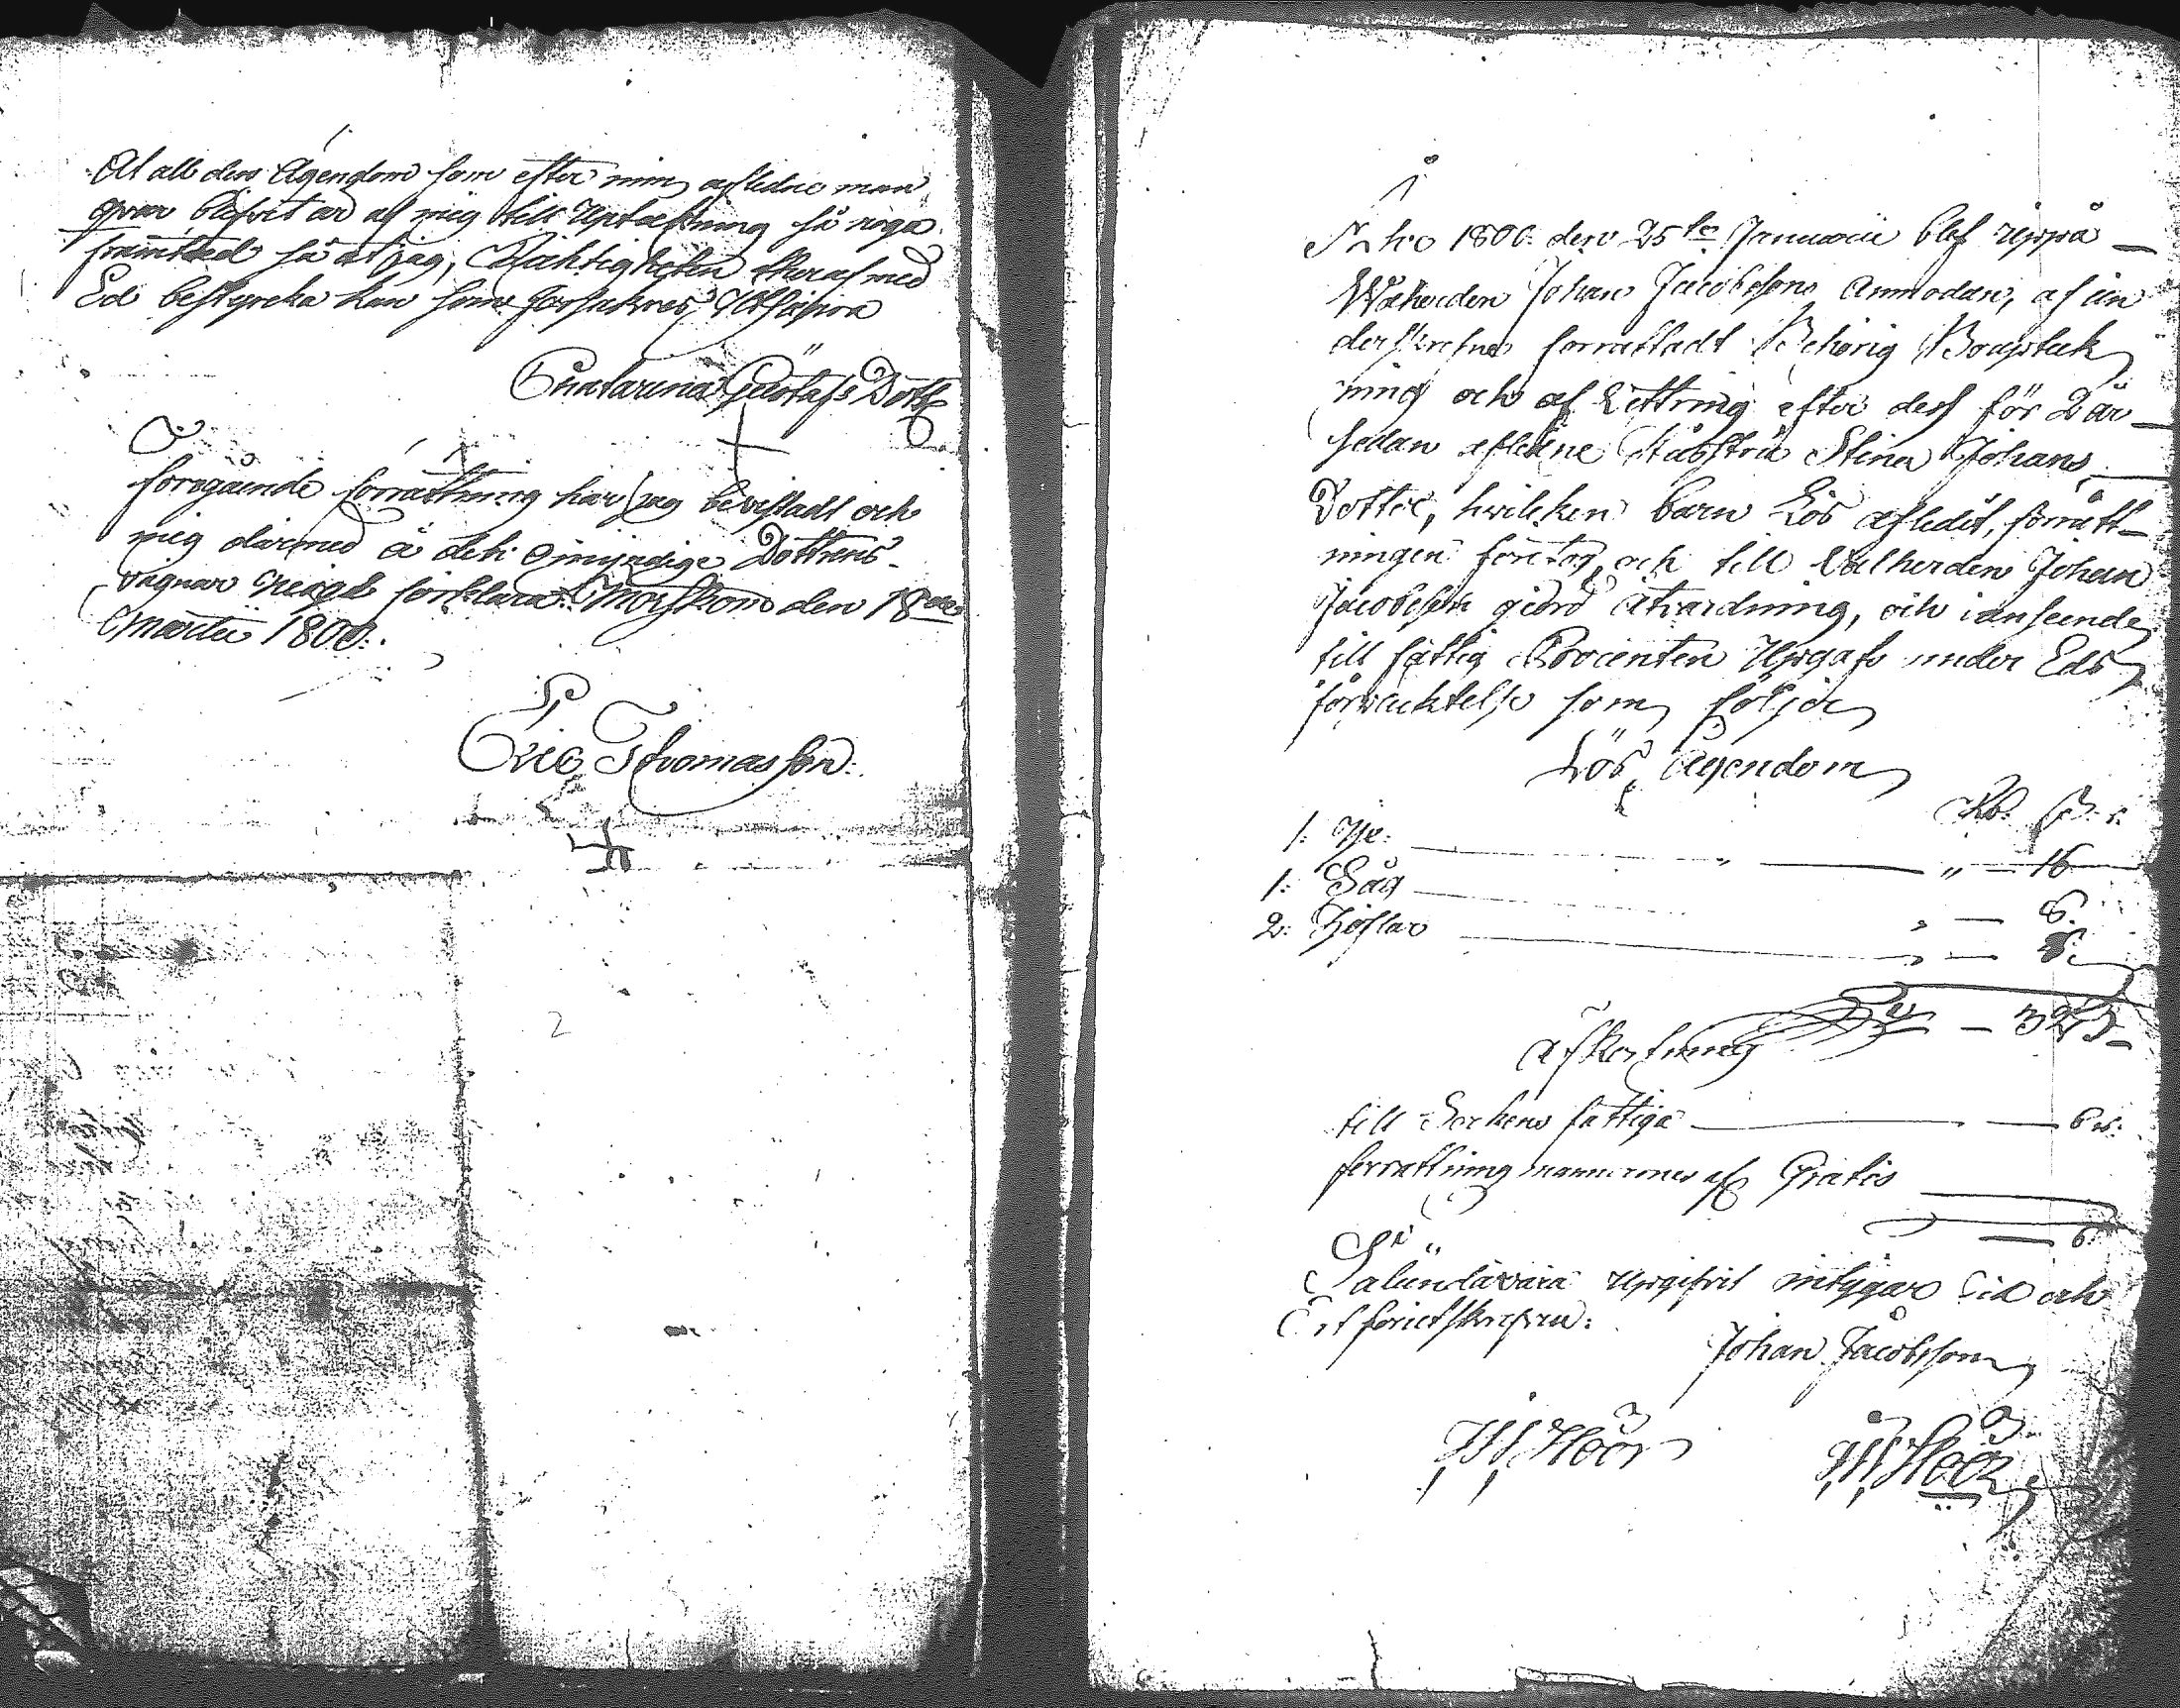 At all den Ägendom som efter min aflidne man
qvar blifvit är af mig till Uptekning så noga
framted så at jag, Richtigheten theraf med
Ed bestyrcka kan som försäkres
Chatarina Gustafs Dotter
föregående förrättning har jag bevistadt och
mig därmed å dete omyndige Dottrens
vägnar nögd förklarar Morskom den 18de
Martii 1800.
Eric Thomasson.
2
Åhr 1800 den 25te Januarii blef uppå
Wälherden Johan Jacobssons Anmodan, af un
derskrefne förrättadt Behörig Boupteck
ning och af Vettring efter dess för 2 år
sedan aflidne Hustru Stina Johans
Dotter, hvilcken barn Lös aflidit, förrätt-
ningen företog och till Välherden Johan
Jacobsson giord åtvardning, och i anseende
till fattig Procenten Upgafs under Eds
förpliktelse som följer
Lös Ägendom
Rd. ß. r.
1: Yxe: " 16
1: Såg " 8.
2: Höflar " 8.
32
afkortning
till Sockens fattiga 6 r:
förrättning mannernes af Gratis
6
Sålunda vara upgifvit intygar
Johan Jacobsson